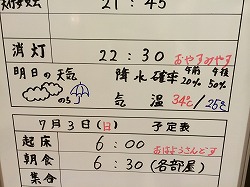 21:45
消灯 22:30 おやすみやす
明日の天気 のち 降水確率 午前 20% 午後 50%
気温 34℃/25℃
7月3日(日) 予定表
起床 6:00 おはようさんどす
朝食 6:30 (各部屋)
集合